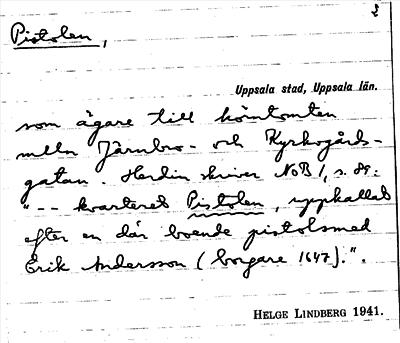 2
Pistolen,
Uppsala stad, Uppsala län.
som ägare till hörntomten
melln Järnbro- och Kyrkogårds-
gatan. Herdin skriver NoB 1, s. 89:
"-- kvarteret Pistolen, uppkallat
efter en där boende pistolsmed
Erik Andersson (borgare 1647).".
HELGE LINDBERG 1941.